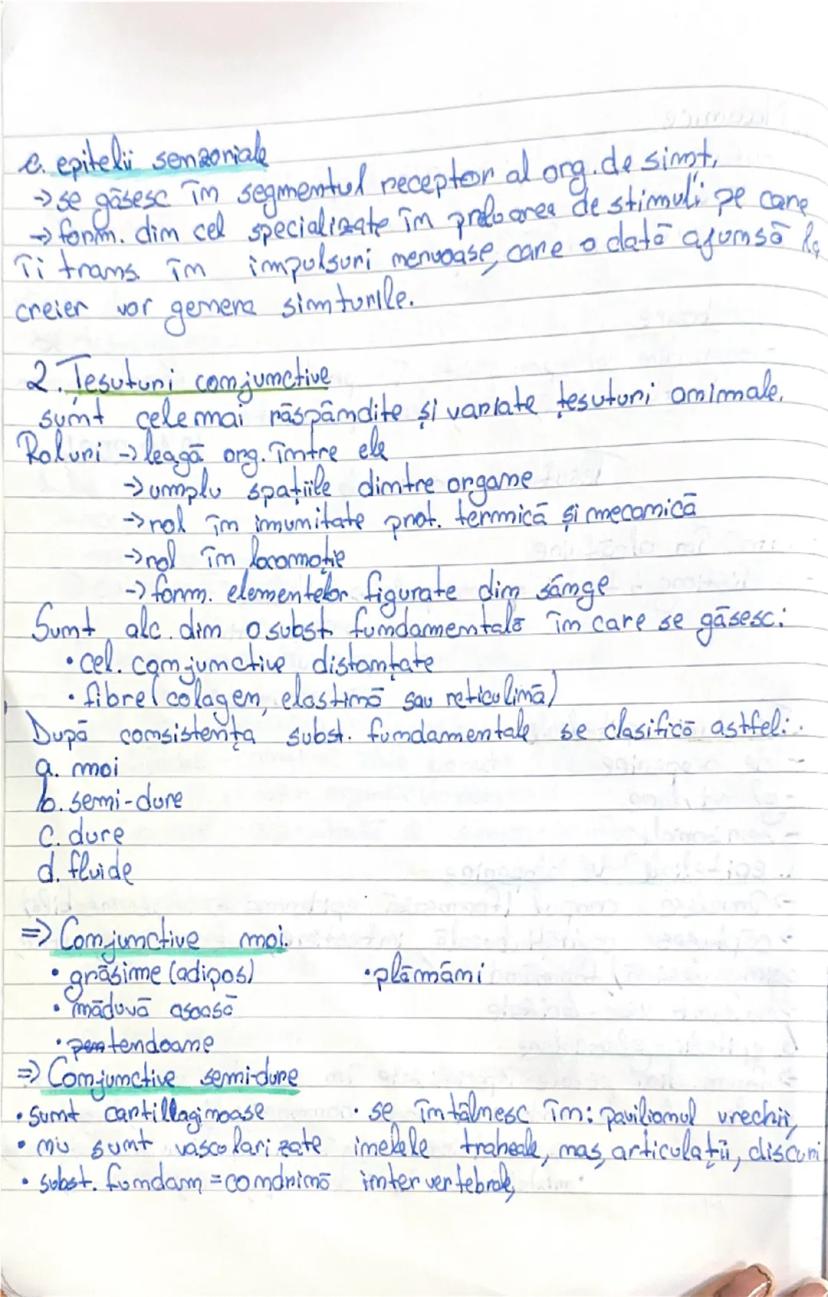 c. epitelii senzoriale
→ se găsesc în segmentul receptor al org. de simt,
→ form. din cel specializate în preluarea de stimuli pe care
îi trans. în impulsuri nervoase, care o dată ajunsă la
creier vor genera simturile.
2. Țesuturi conjunctive
sunt cele mai răspândite și variate țesuturi animale.
Roluri → leagă org. între ele
→ umplu spațiile dintre organe
→ rol în imunitate prot. termică și mecanică
→ rol în locomoție
→ form. elementelor figurate din sânge
Sunt alc. din o subst. fundamentală în care se găsesc:
• cel. conjunctive distanțate
• fibre (colagen, elastină sau reticulină)
După consistența subst. fundamentale se clasifică astfel:
a. moi
b. semi-dure
c. dure
d. fluide
⇒ Conjunctive moi
• grăsime (adipos) • plămâni
• măduvă osoasă
• tendoane
⇒ Conjunctive semi-dure
• sunt cartillaginoase • se întâlnesc în: pavilionul urechii,
• nu sunt vascolarizate inelele traheale, nas, articulații, discuri
• subst. fundam = condrină intervertebrale,